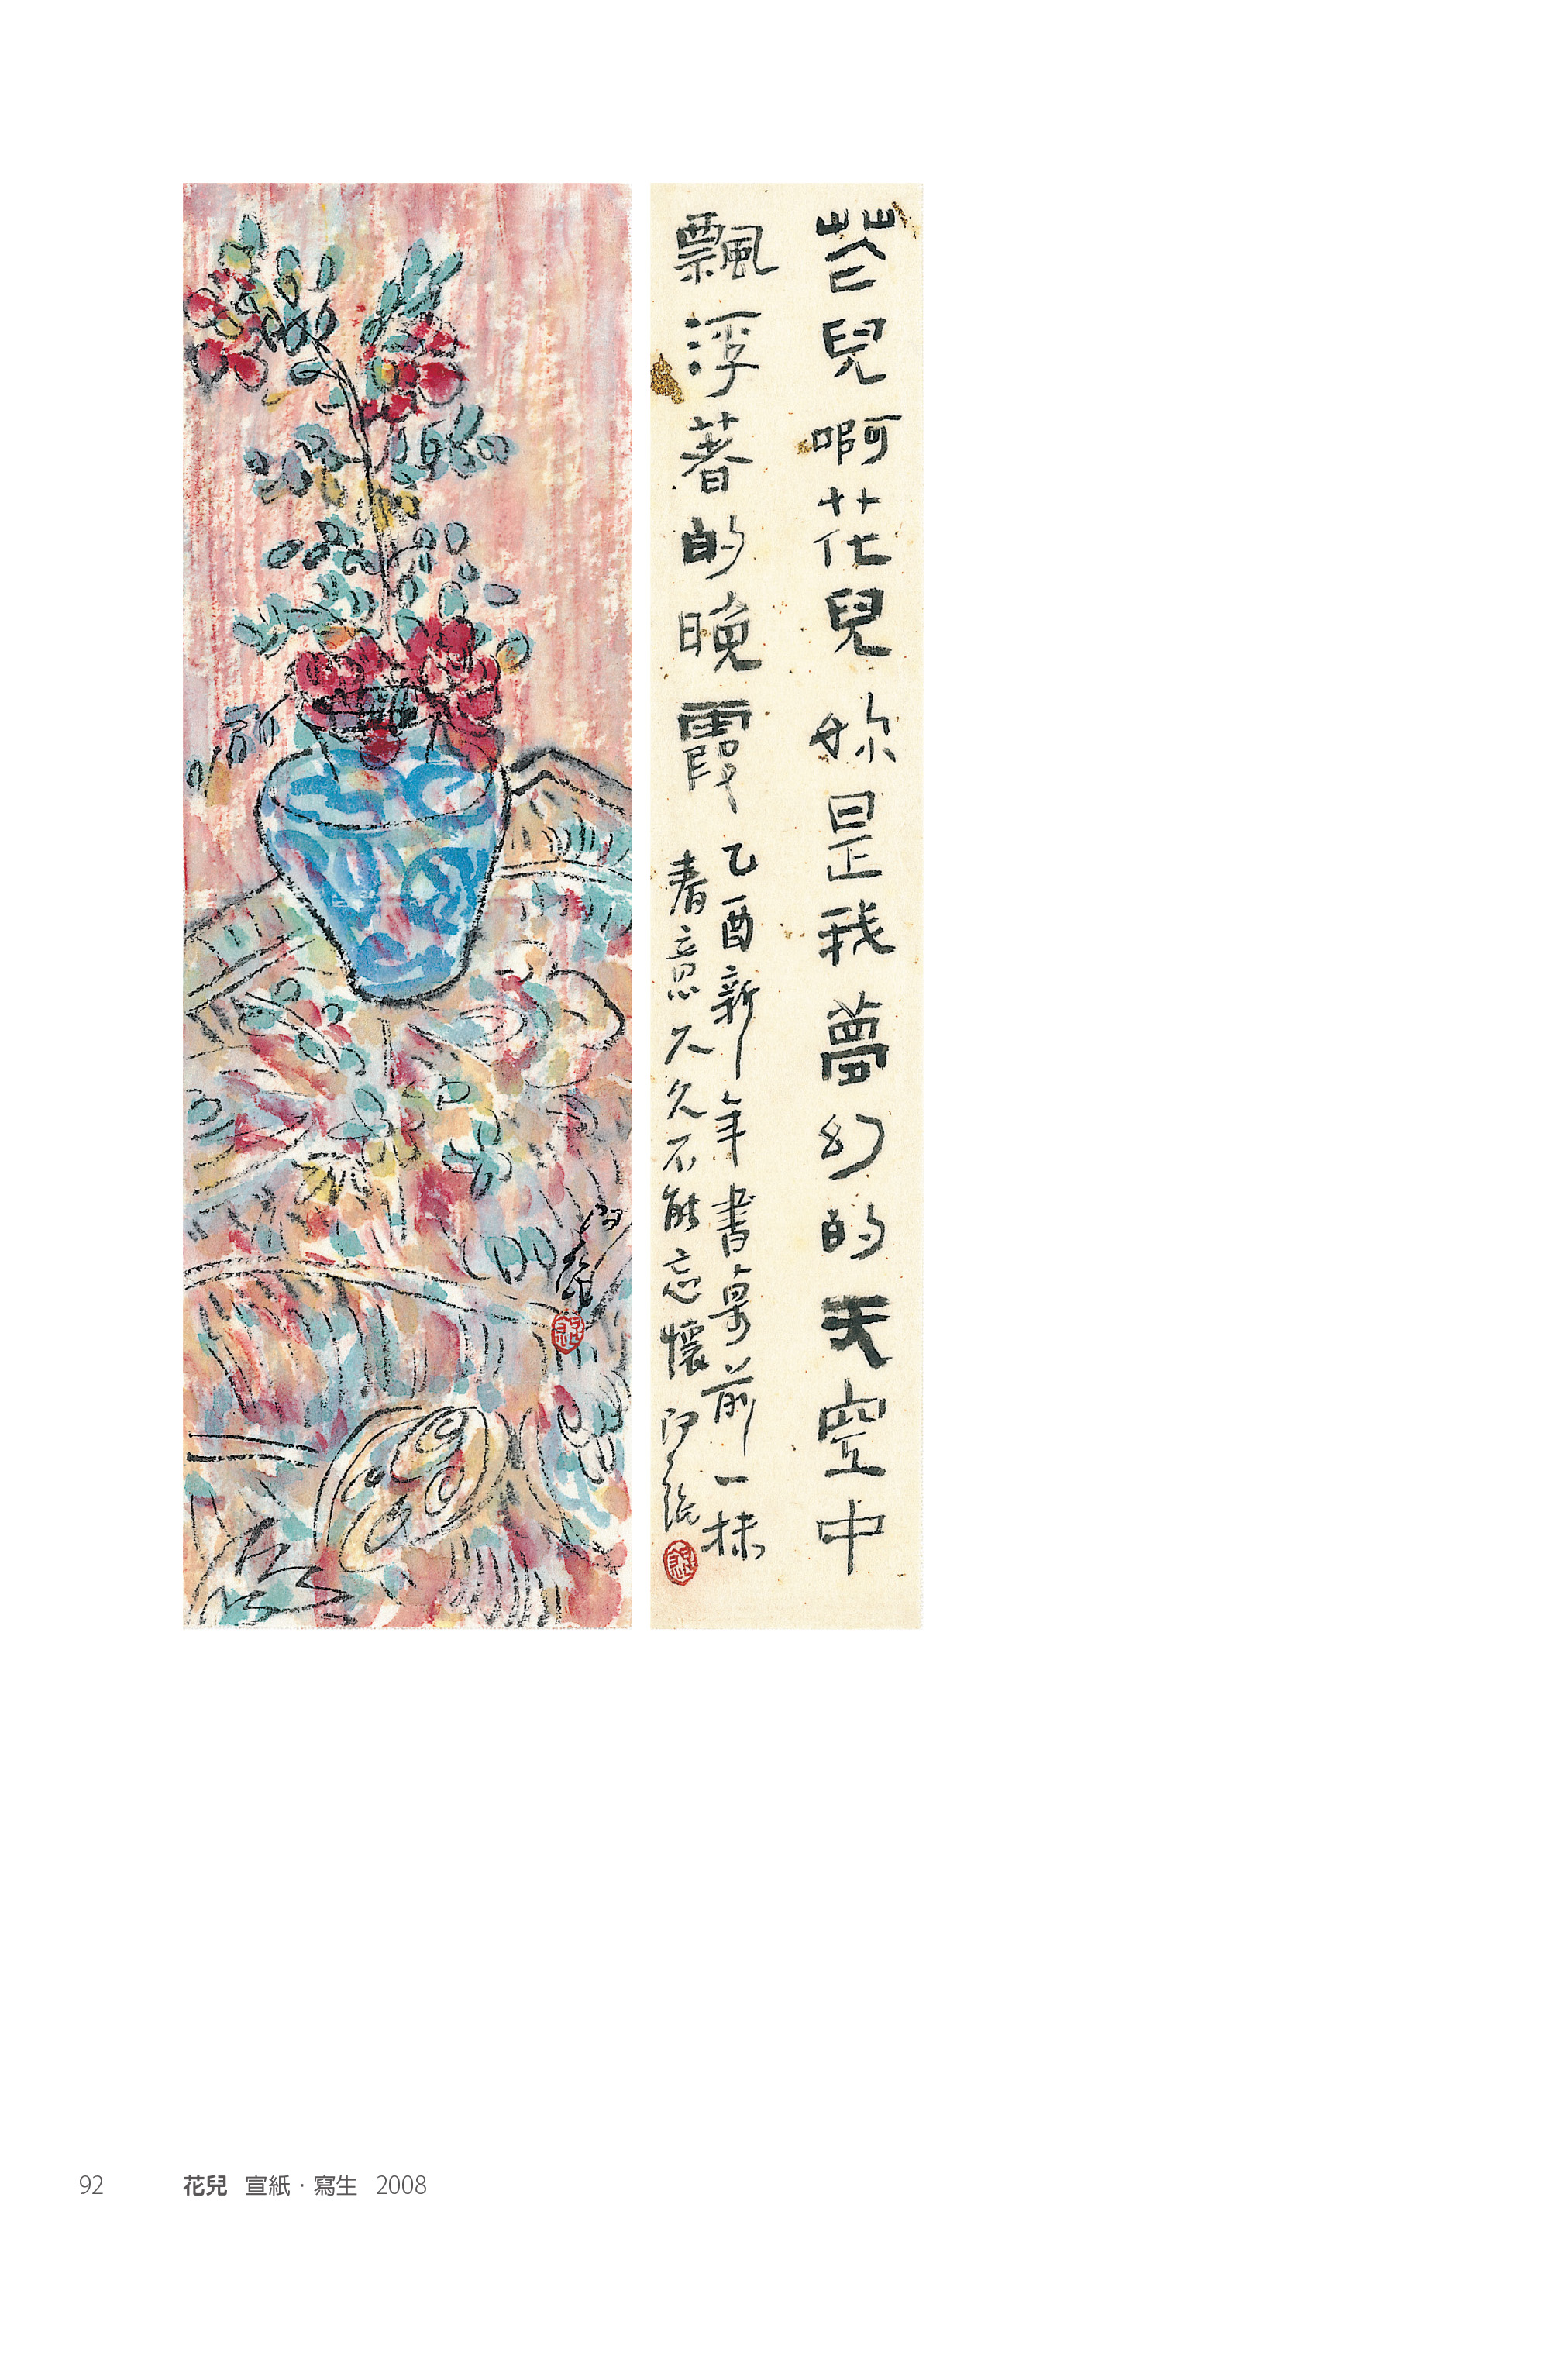 花兒啊花兒妳是我夢幻的天空中
飄浮著的晚霞
乙酉新年書案前一抹
春意久久不能忘懷
92
花兒 宣紙・寫生 2008